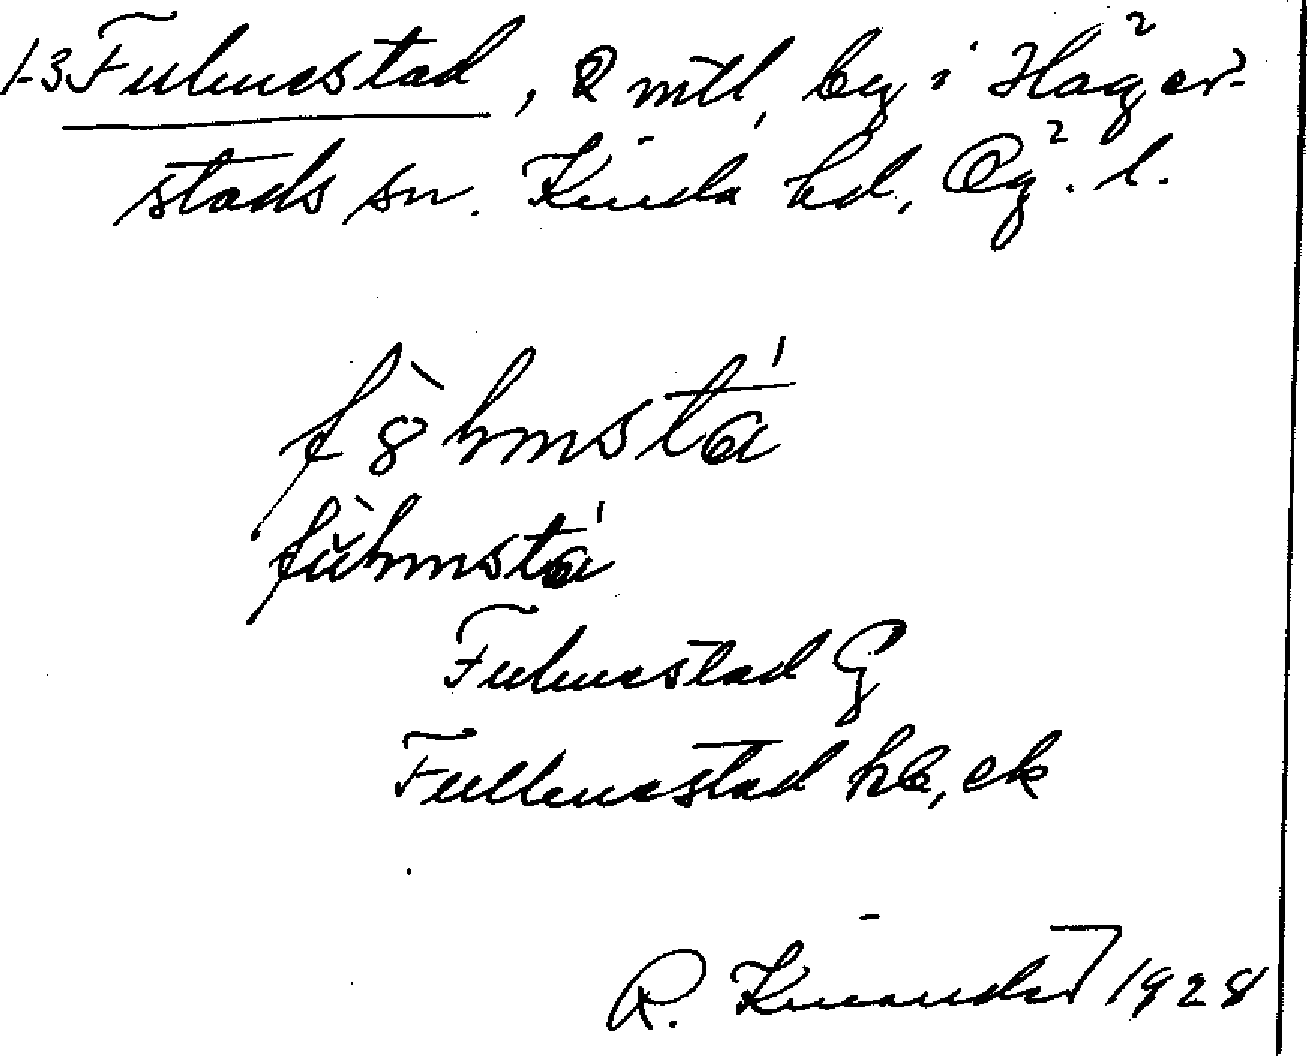 1-3 Fulmestad, 2 mtl, by i Häger-
stads sn. Kinda hd, Ög. l.
fùlmsta
Fulmestad G
Fullmestad hb, ek
R. Kinander 1928